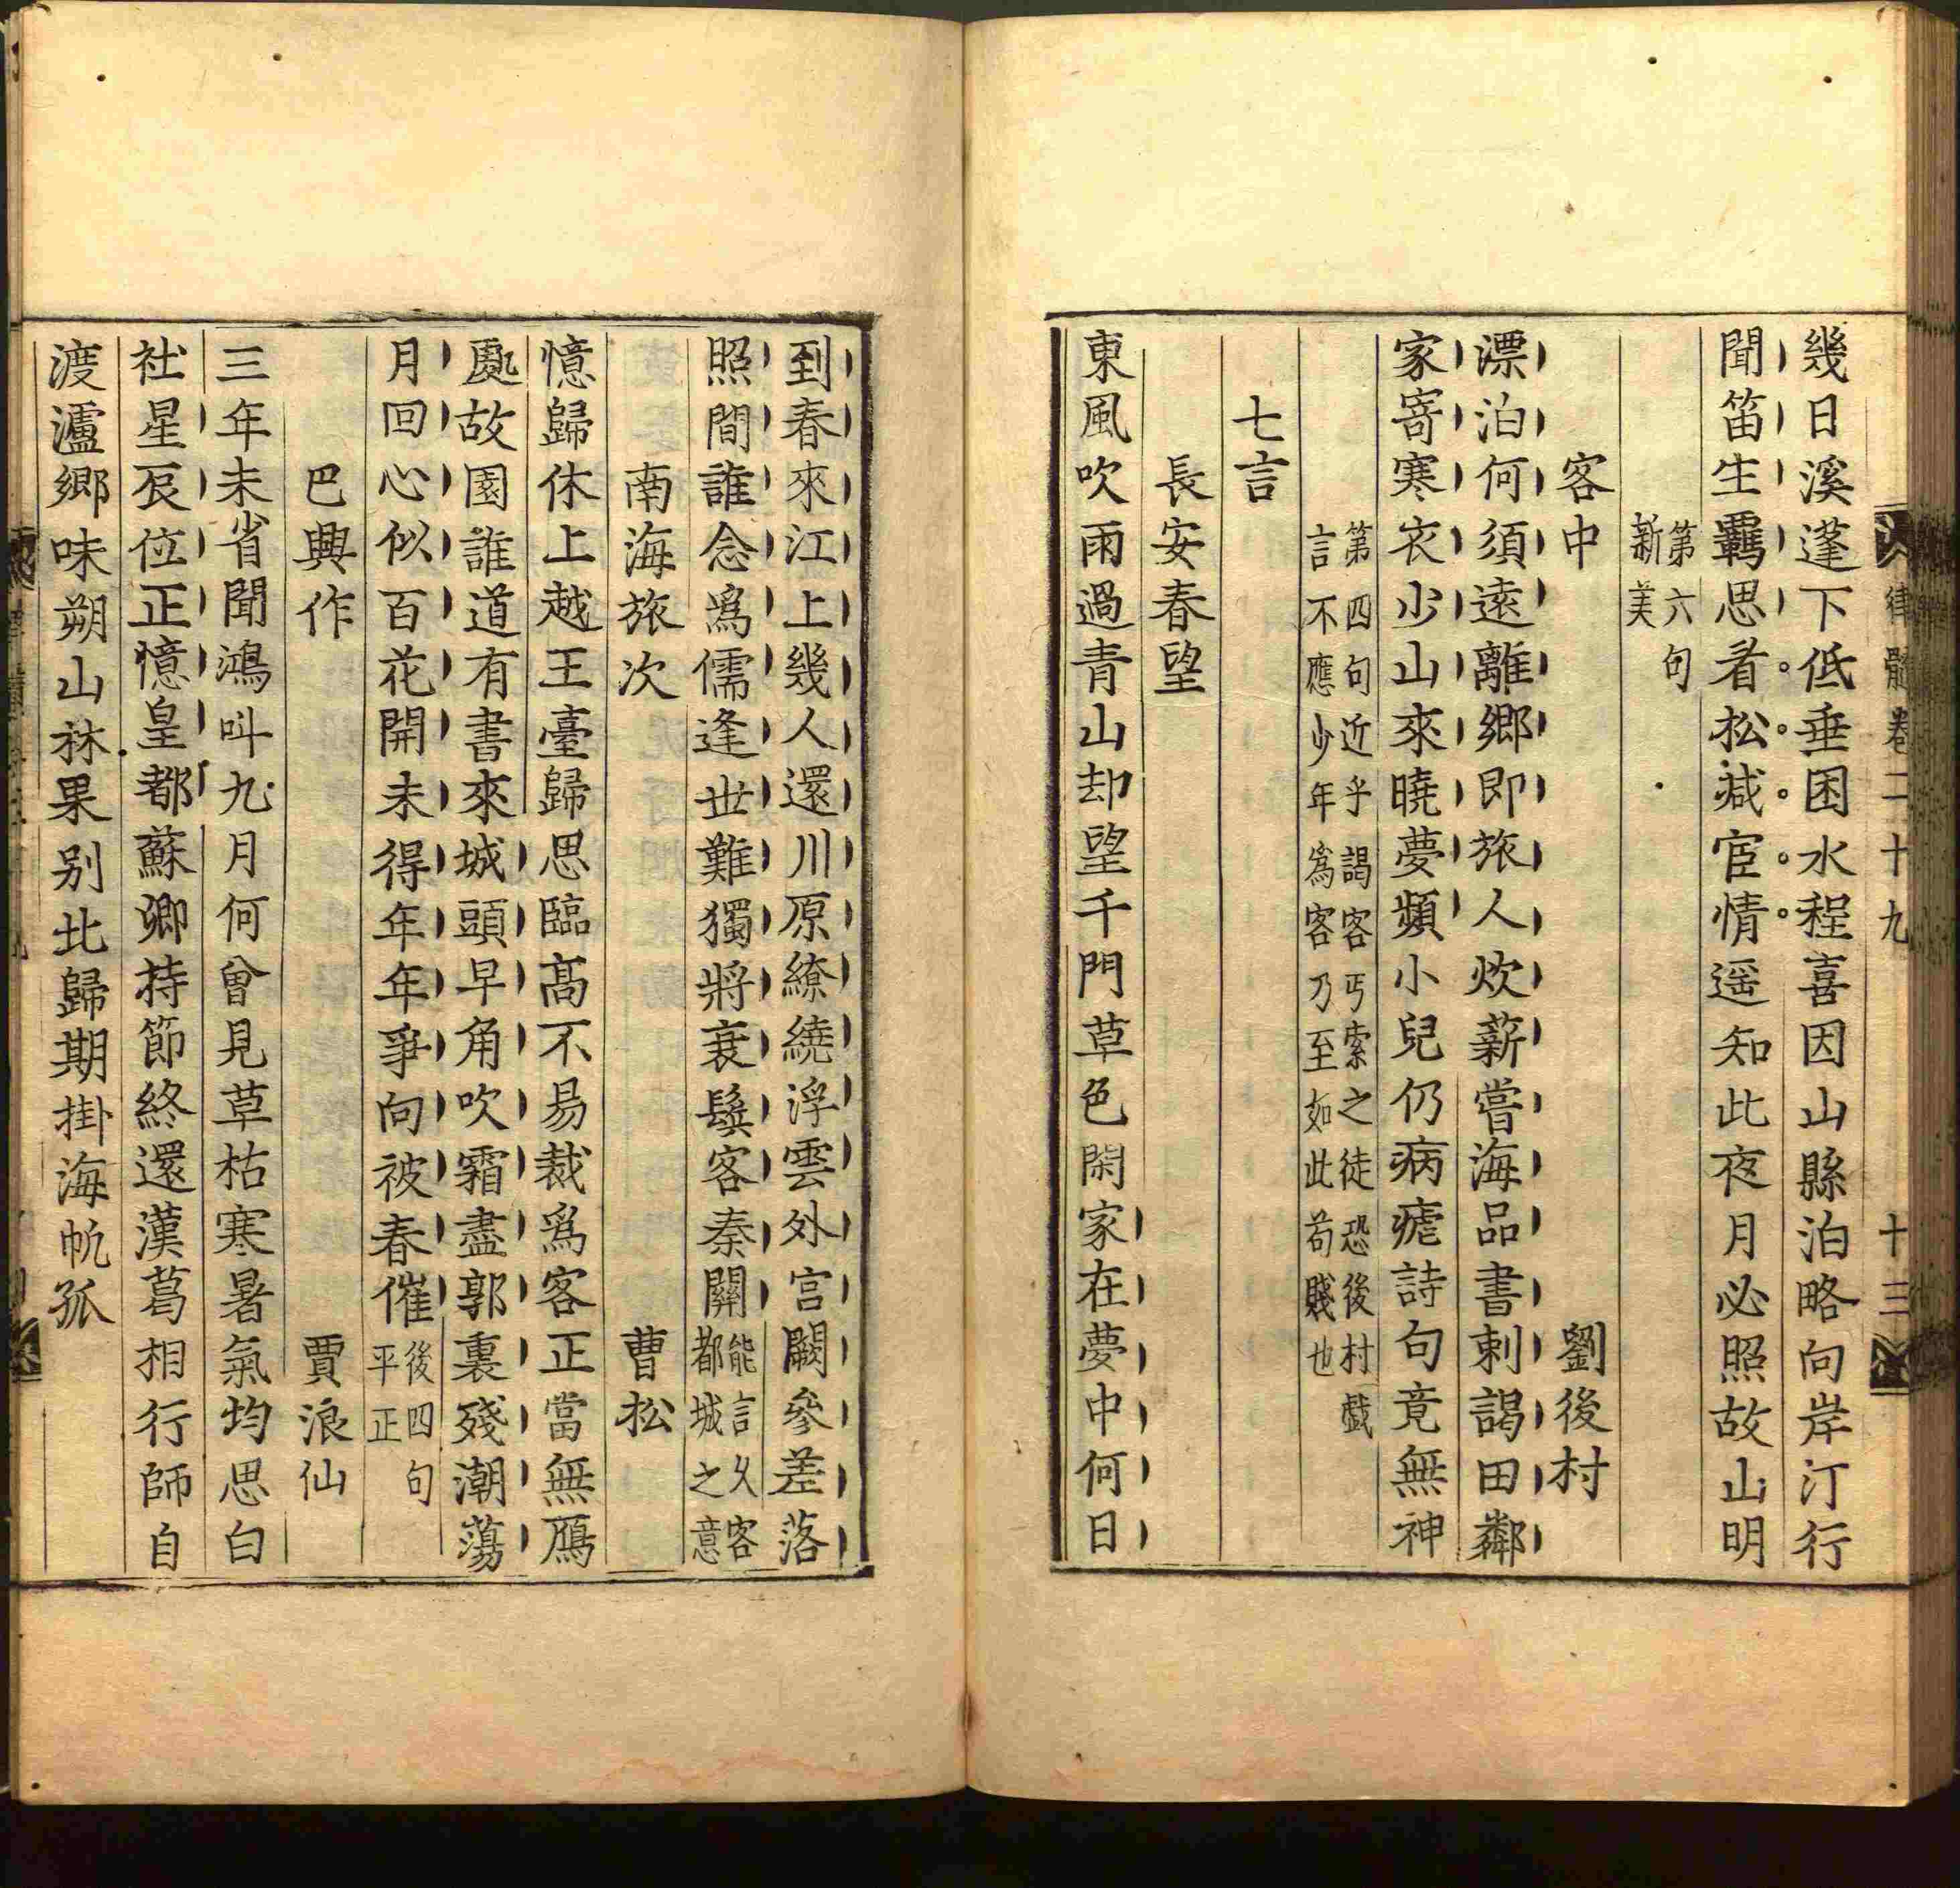 律髓卷二十九 十三
幾日溪蓬下低垂困水程喜因山縣泊略向岸汀行
聞笛生羈思看松減宦情遥知此夜月必照故山明
第六句
新美
客中 劉後村
漂泊何須遠離鄉即旅人炊薪嘗海品書剌謁田鄰
家寄寒衣少山來曉夢頻小兒仍病瘧詩句竟無神
第四句近乎謁客丐索之徒恐後村戯
言不應少年為客乃至如此苟賤也
七言
長安春望
東風吹雨過青山却望千門草色閑家在夢中何日
到春來江上幾人還川原繚繞浮雲外宫闕參差落
照間誰念爲儒逢世難獨將衰鬢客秦關
能言久客
都城之意
南海旅次 曹松
憶歸休上越王臺歸思臨高不易裁爲客正當無鴈
處故園誰道有書來城頭早角吹霜盡郭裏殘潮蕩
月回心似百花開未得年年爭向被春催
後四句
平正
巴興作 賈浪仙
三年未省聞鴻叫九月何曾見草枯寒暑氣均思白
社星辰位正憶皇都蘇卿持節終還漢葛相行師自
渡瀘鄉味朔山林果别北歸期掛海帆孤